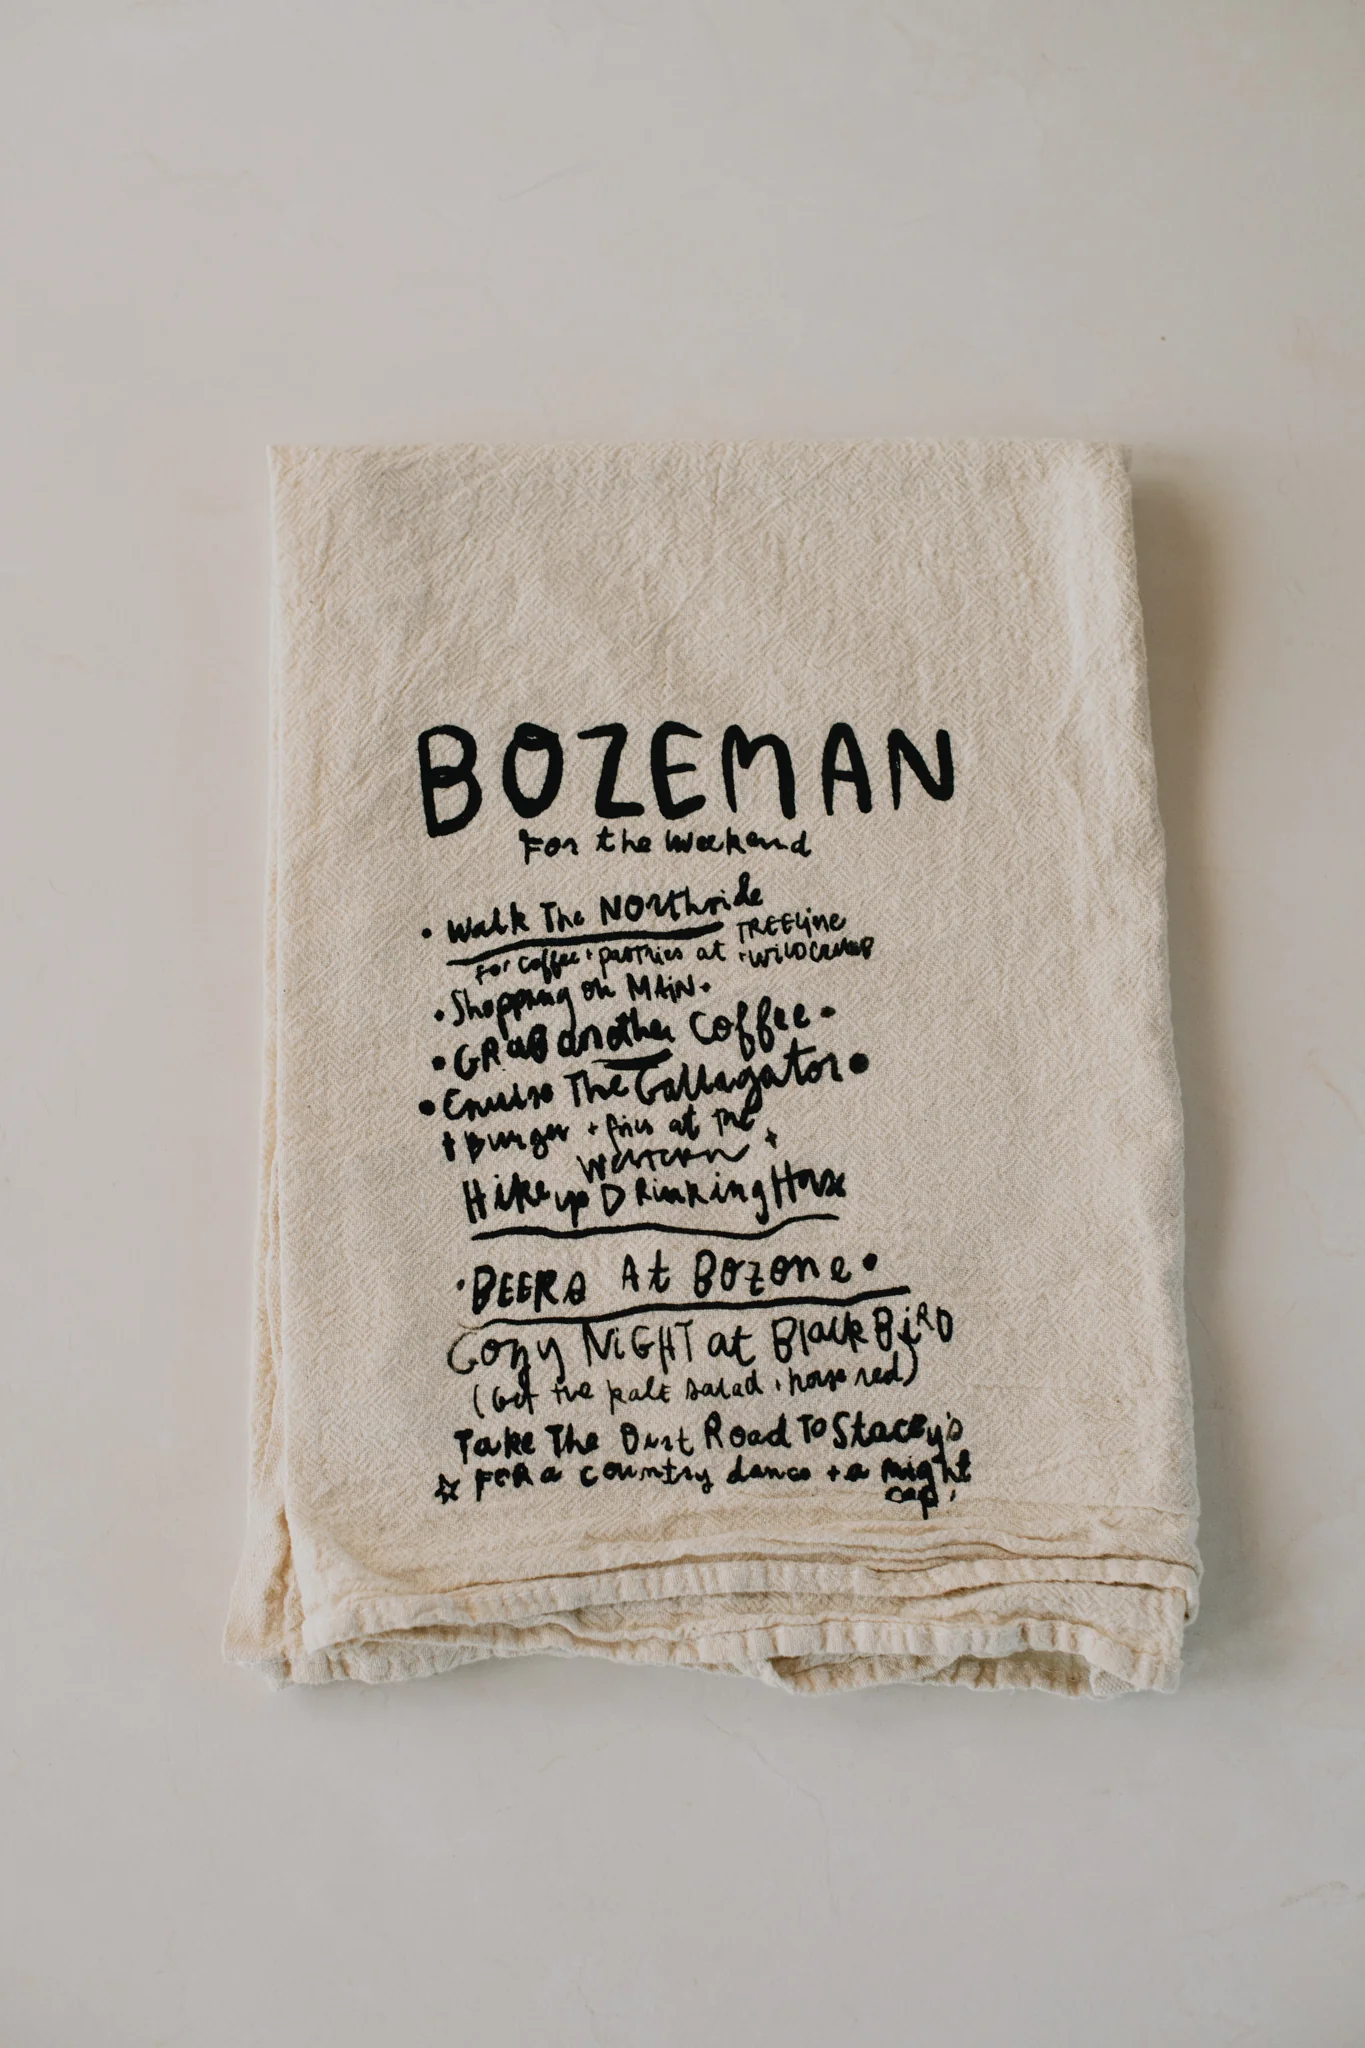 BOZEMAN
For the Weekend
• Walk The Northside
For coffee + pastries at TREELine
+ WILDCRUMB
• Shopping on MAIN •
• GRAB another Coffee •
• Cruise The Gallagator •
+ Burger + fries at the
Western +
Hike up Drinking Horse
• BEERS At BOZONE •
Cozy NIGHT at BlackBiRD
(Get the kale salad + house red)
Take The Dirt Road To Stacey's
☆ FOR a country dance + a night
cap!